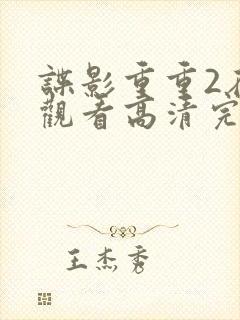 諜影重重2
觀看高清完
王杰秀